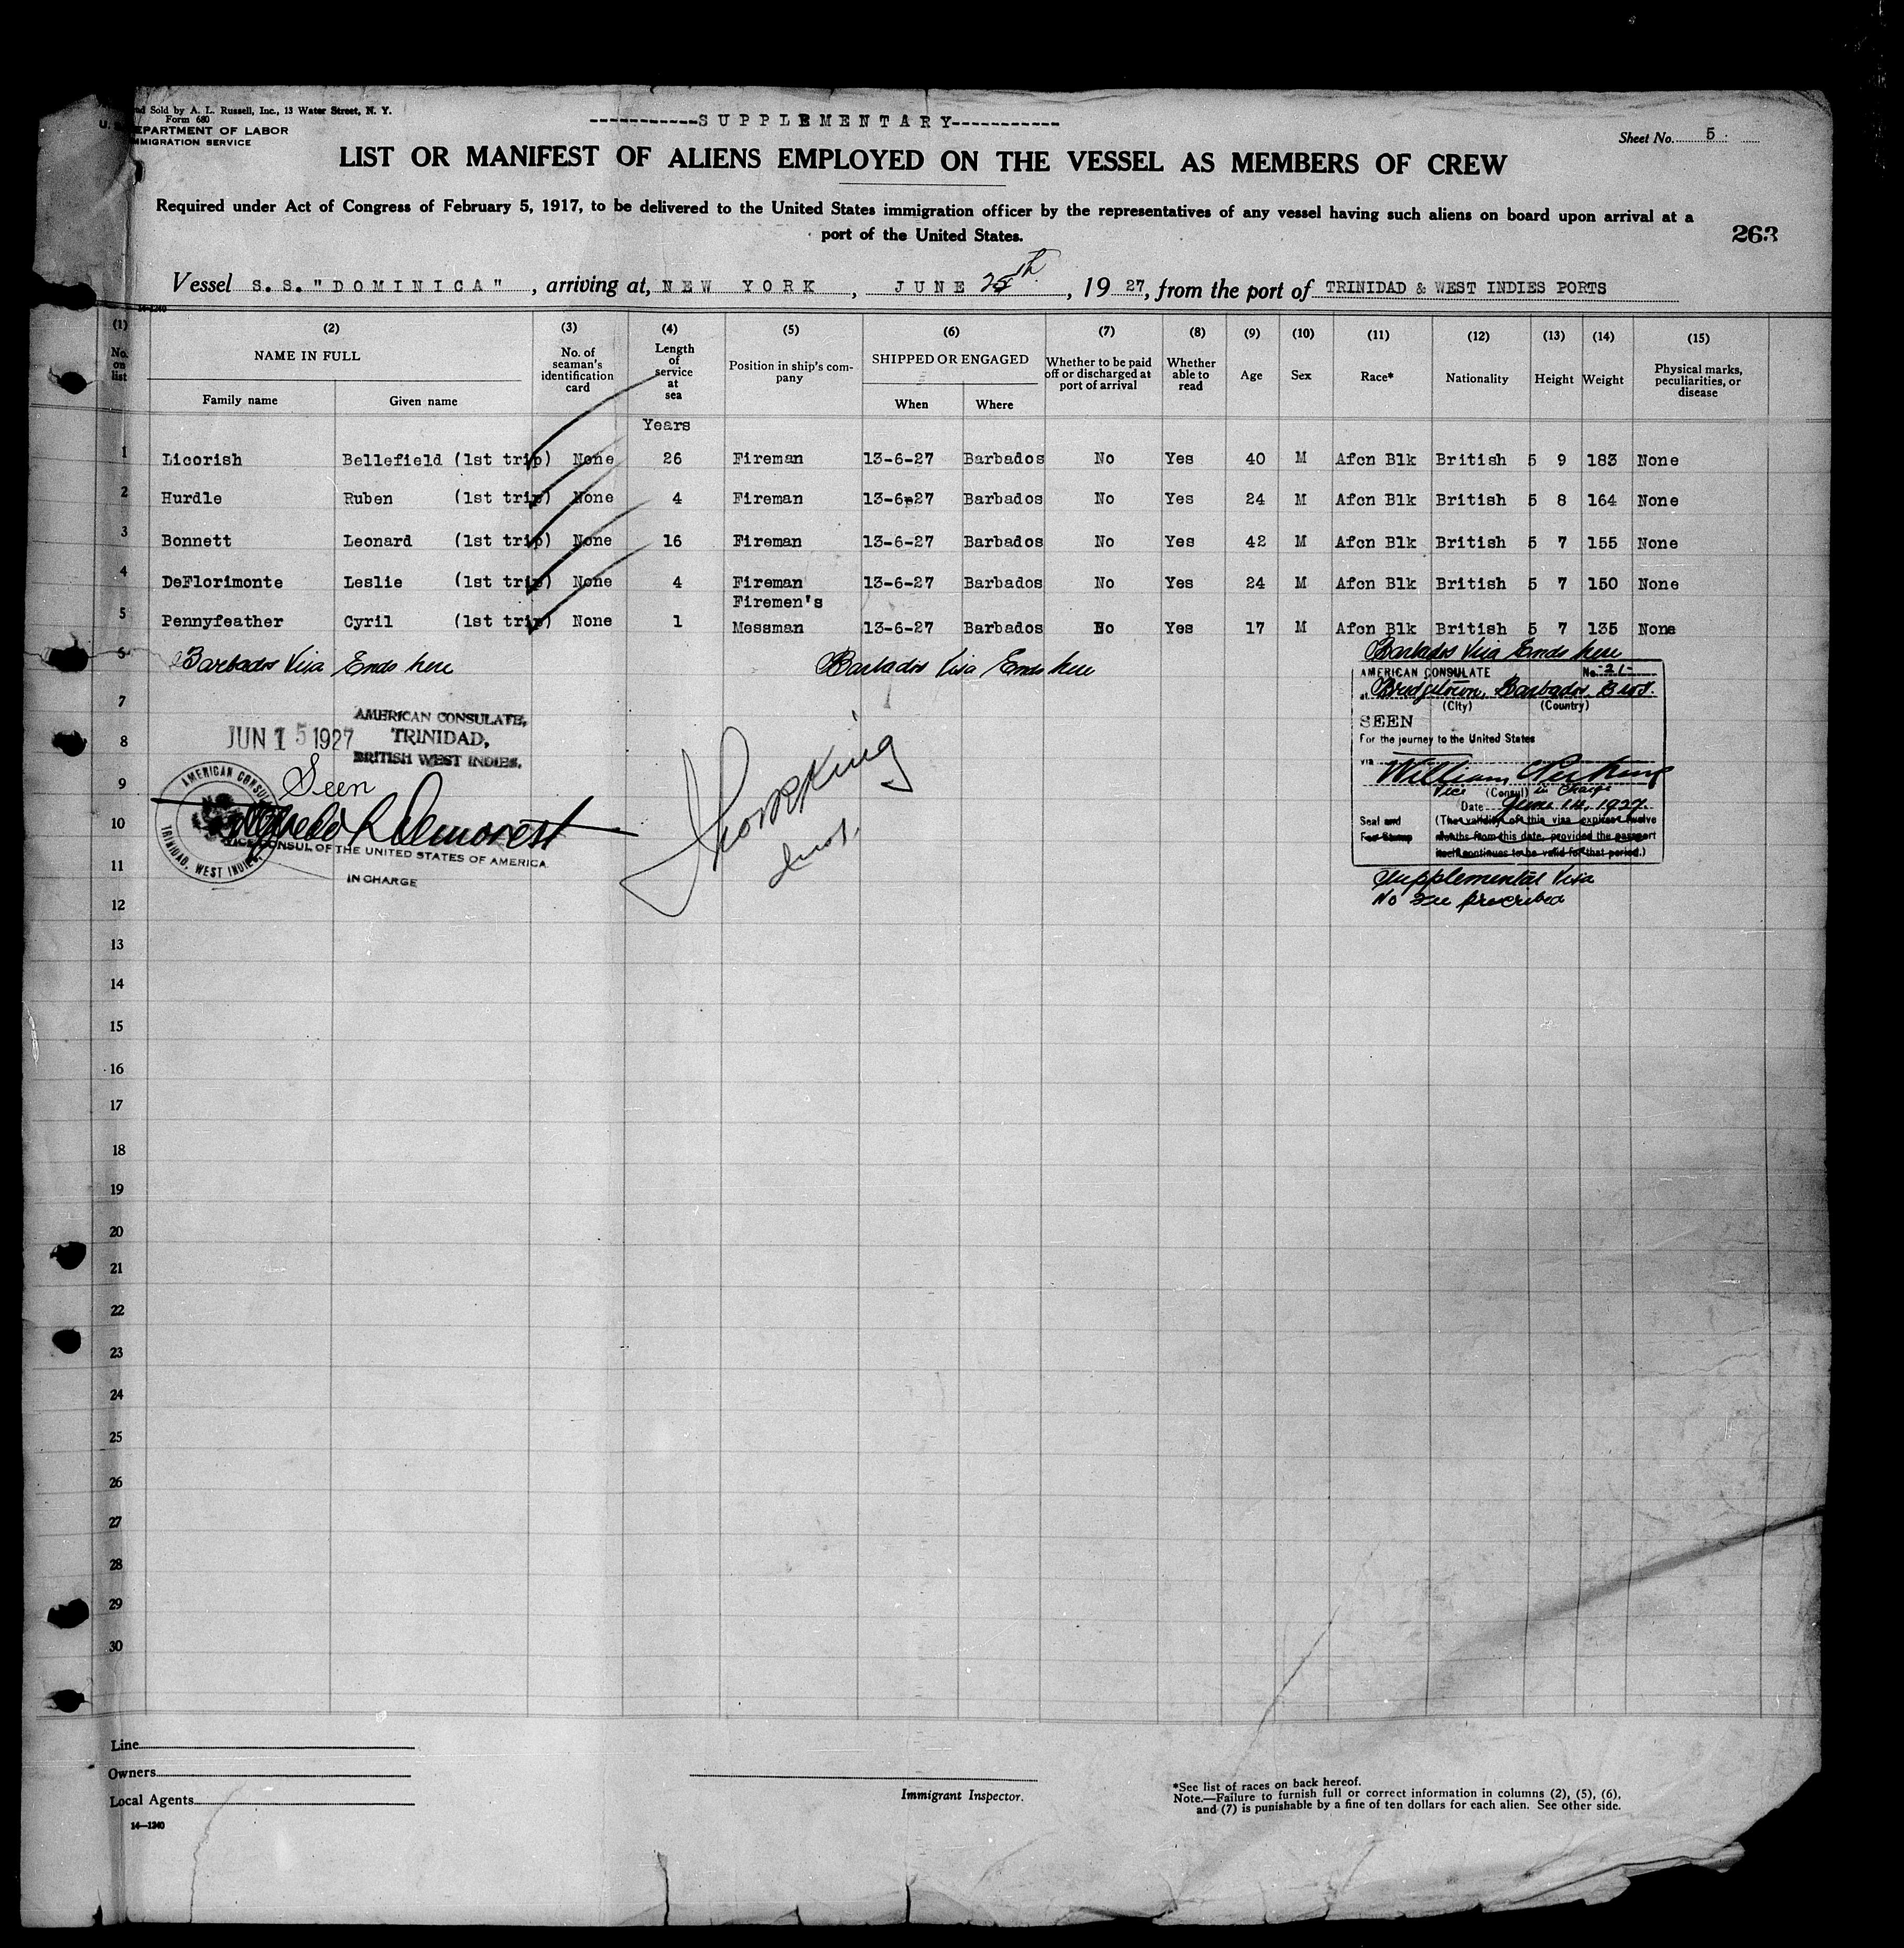 nd Sold by A. L. Russell, Inc., 13 Water Street, N. Y.
Form 680
U. EPARTMENT OF LABOR
MMIGRATION SERVICE
-----------SUPPLEMENTARY-----------
Sheet No. 5
LIST OR MANIFEST OF ALIENS EMPLOYED ON THE VESSEL AS MEMBERS OF CREW
Required under Act of Congress of February 5, 1917, to be delivered to the United States immigration officer by the representatives of any vessel having such aliens on board upon arrival at a
port of the United States.
263
Vessel S.S."DOMINICA", arriving at, NEW YORK, JUNE 25th, 1927, from the port of TRINIDAD & WEST INDIES PORTS
14-1240
(1) (2) (3) (4) (5) (6) (7) (8) (9) (10) (11) (12) (13) (14) (15)
No. on list
NAME IN FULL
Family name Given name
No. of seaman's identification card
Length of service at sea
Position in ship's company
SHIPPED OR ENGAGED
When Where
Whether to be paid off or discharged at port of arrival
Whether able to read
Age Sex Race* Nationality Height Weight
Physical marks, peculiarities, or disease
Years
1 Licorish Bellefield (1st trip) None 26 Fireman 13-6-27 Barbados No Yes 40 M Afcn Blk British 5 9 183 None
2 Hurdle Ruben (1st trip) None 4 Fireman 13-6-27 Barbados No Yes 24 M Afcn Blk British 5 8 164 None
3 Bonnett Leonard (1st trip) None 16 Fireman 13-6-27 Barbados No Yes 42 M Afcn Blk British 5 7 155 None
4 DeFlorimonte Leslie (1st trip) None 4 Fireman 13-6-27 Barbados No Yes 24 M Afcn Blk British 5 7 150 None
Firemen's
5 Pennyfeather Cyril (1st trip) None 1 Messman 13-6-27 Barbados No Yes 17 M Afcn Blk British 5 7 135 None
6 Barbados Visa Ends here Barbados Visa Ends here Barbados Visa Ends here
AMERICAN CONSULATE No. -21-
at Bridgetown, Barbados B.W.I.
(City) (Country)
SEEN
For the journey to the United States
via
William Perkins
Vice (Consul) in charge
Date June 14, 1927
Seal and (The validity of this visa expires twelve
Fee Stamp months from this date, provided the passport
itself continues to be valid for that period.)
Supplemental Visa
No Fee prescribed
7
8
9
10
11
12
13
14
15
16
17
18
19
20
21
22
23
24
25
26
27
28
29
30
JUN 15 1927
AMERICAN CONSULATE,
TRINIDAD,
BRITISH WEST INDIES.
Seen
AMERICAN CONSUL
TRINIDAD, WEST INDIES
VICE CONSUL OF THE UNITED STATES OF AMERICA
IN CHARGE
Line
Owners
Local Agents
14-1240
Immigrant Inspector.
*See list of races on back hereof.
Note.—Failure to furnish full or correct information in columns (2), (5), (6),
and (7) is punishable by a fine of ten dollars for each alien. See other side.